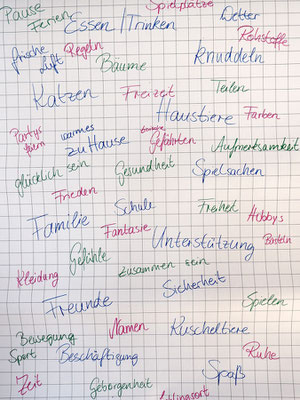 Pause
Spielplätze
Ferien
Essen / Trinken
Wetter
Rohstoffe
frische Luft
Regeln
knuddeln
Bäume
Teilen
Katzen
Freizeit
Haustiere
Farben
warmes
zuHause
Gefährten
Aufmerksamkeit
glücklich sein
Gesundheit
Spielsachen
Frieden
Schule
Freiheit
Hobbys
Familie
Fantasie
Unterstützung
Basteln
Gefühle
zusammen sein
Kleidung
Sicherheit
Freunde
Spielen
Bewegung
Namen
Kuscheltiere
Sport
Beschäftigung
Ruhe
Zeit
Geborgenheit
Spaß